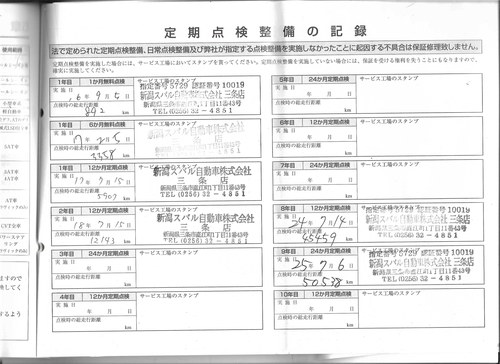 定期点検整備の記録
法で定められた定期点検整備、日常点検整備及び弊社が指定する点検整備を実施しなかったことに起因する不具合は保証修理致しません。
定期点検整備を実施した場合に、サービス工場においてスタンプを貰ってください。定期点検整備を実施していない場合には、保証を受ける権利を失うことにもなりますので、
確実に実施してください。
1年目 1か月無料点検 サービス工場のスタンプ
実施日 16年9月5日
点検時の総走行距離 892 km
指定番号 5729 認証番号 10019
新潟スバル自動車株式会社 三条店
TEL(0256)32-4851
1年目 6か月無料点検 サービス工場のスタンプ
実施日 17年3月5日
点検時の総走行距離 3358 km
1年目 12か月定期点検 サービス工場のスタンプ
実施日 17年9月15日
点検時の総走行距離 5909 km
新潟スバル自動車株式会社
三条店
TEL(0256)32-4851
2年目 12か月定期点検 サービス工場のスタンプ
実施日 18年7月15日
点検時の総走行距離 12193 km
新潟スバル自動車株式会社
三条店
TEL(0256)32-4851
3年目 24か月定期点検 サービス工場のスタンプ
実施日 年 月 日
点検時の総走行距離 km
4年目 12か月定期点検 サービス工場のスタンプ
実施日 年 月 日
点検時の総走行距離 km
5年目 24か月定期点検 サービス工場のスタンプ
実施日 年 月 日
点検時の総走行距離 km
6年目 12か月定期点検 サービス工場のスタンプ
実施日 年 月 日
点検時の総走行距離 km
7年目 24か月定期点検 サービス工場のスタンプ
実施日 年 月 日
点検時の総走行距離 km
8年目 12か月定期点検 サービス工場のスタンプ
実施日 24年7月14日
点検時の総走行距離 45459 km
指定番号 5729 認証番号 10019
新潟スバル自動車株式会社 三条店
TEL(0256)32-4851
9年目 24か月定期点検 サービス工場のスタンプ
実施日 25年7月6日
点検時の総走行距離 50538 km
指定番号 5729 認証番号 10019
新潟スバル自動車株式会社 三条店
TEL(0256)32-4851
10年目 12か月定期点検 サービス工場のスタンプ
実施日 年 月 日
点検時の総走行距離 km